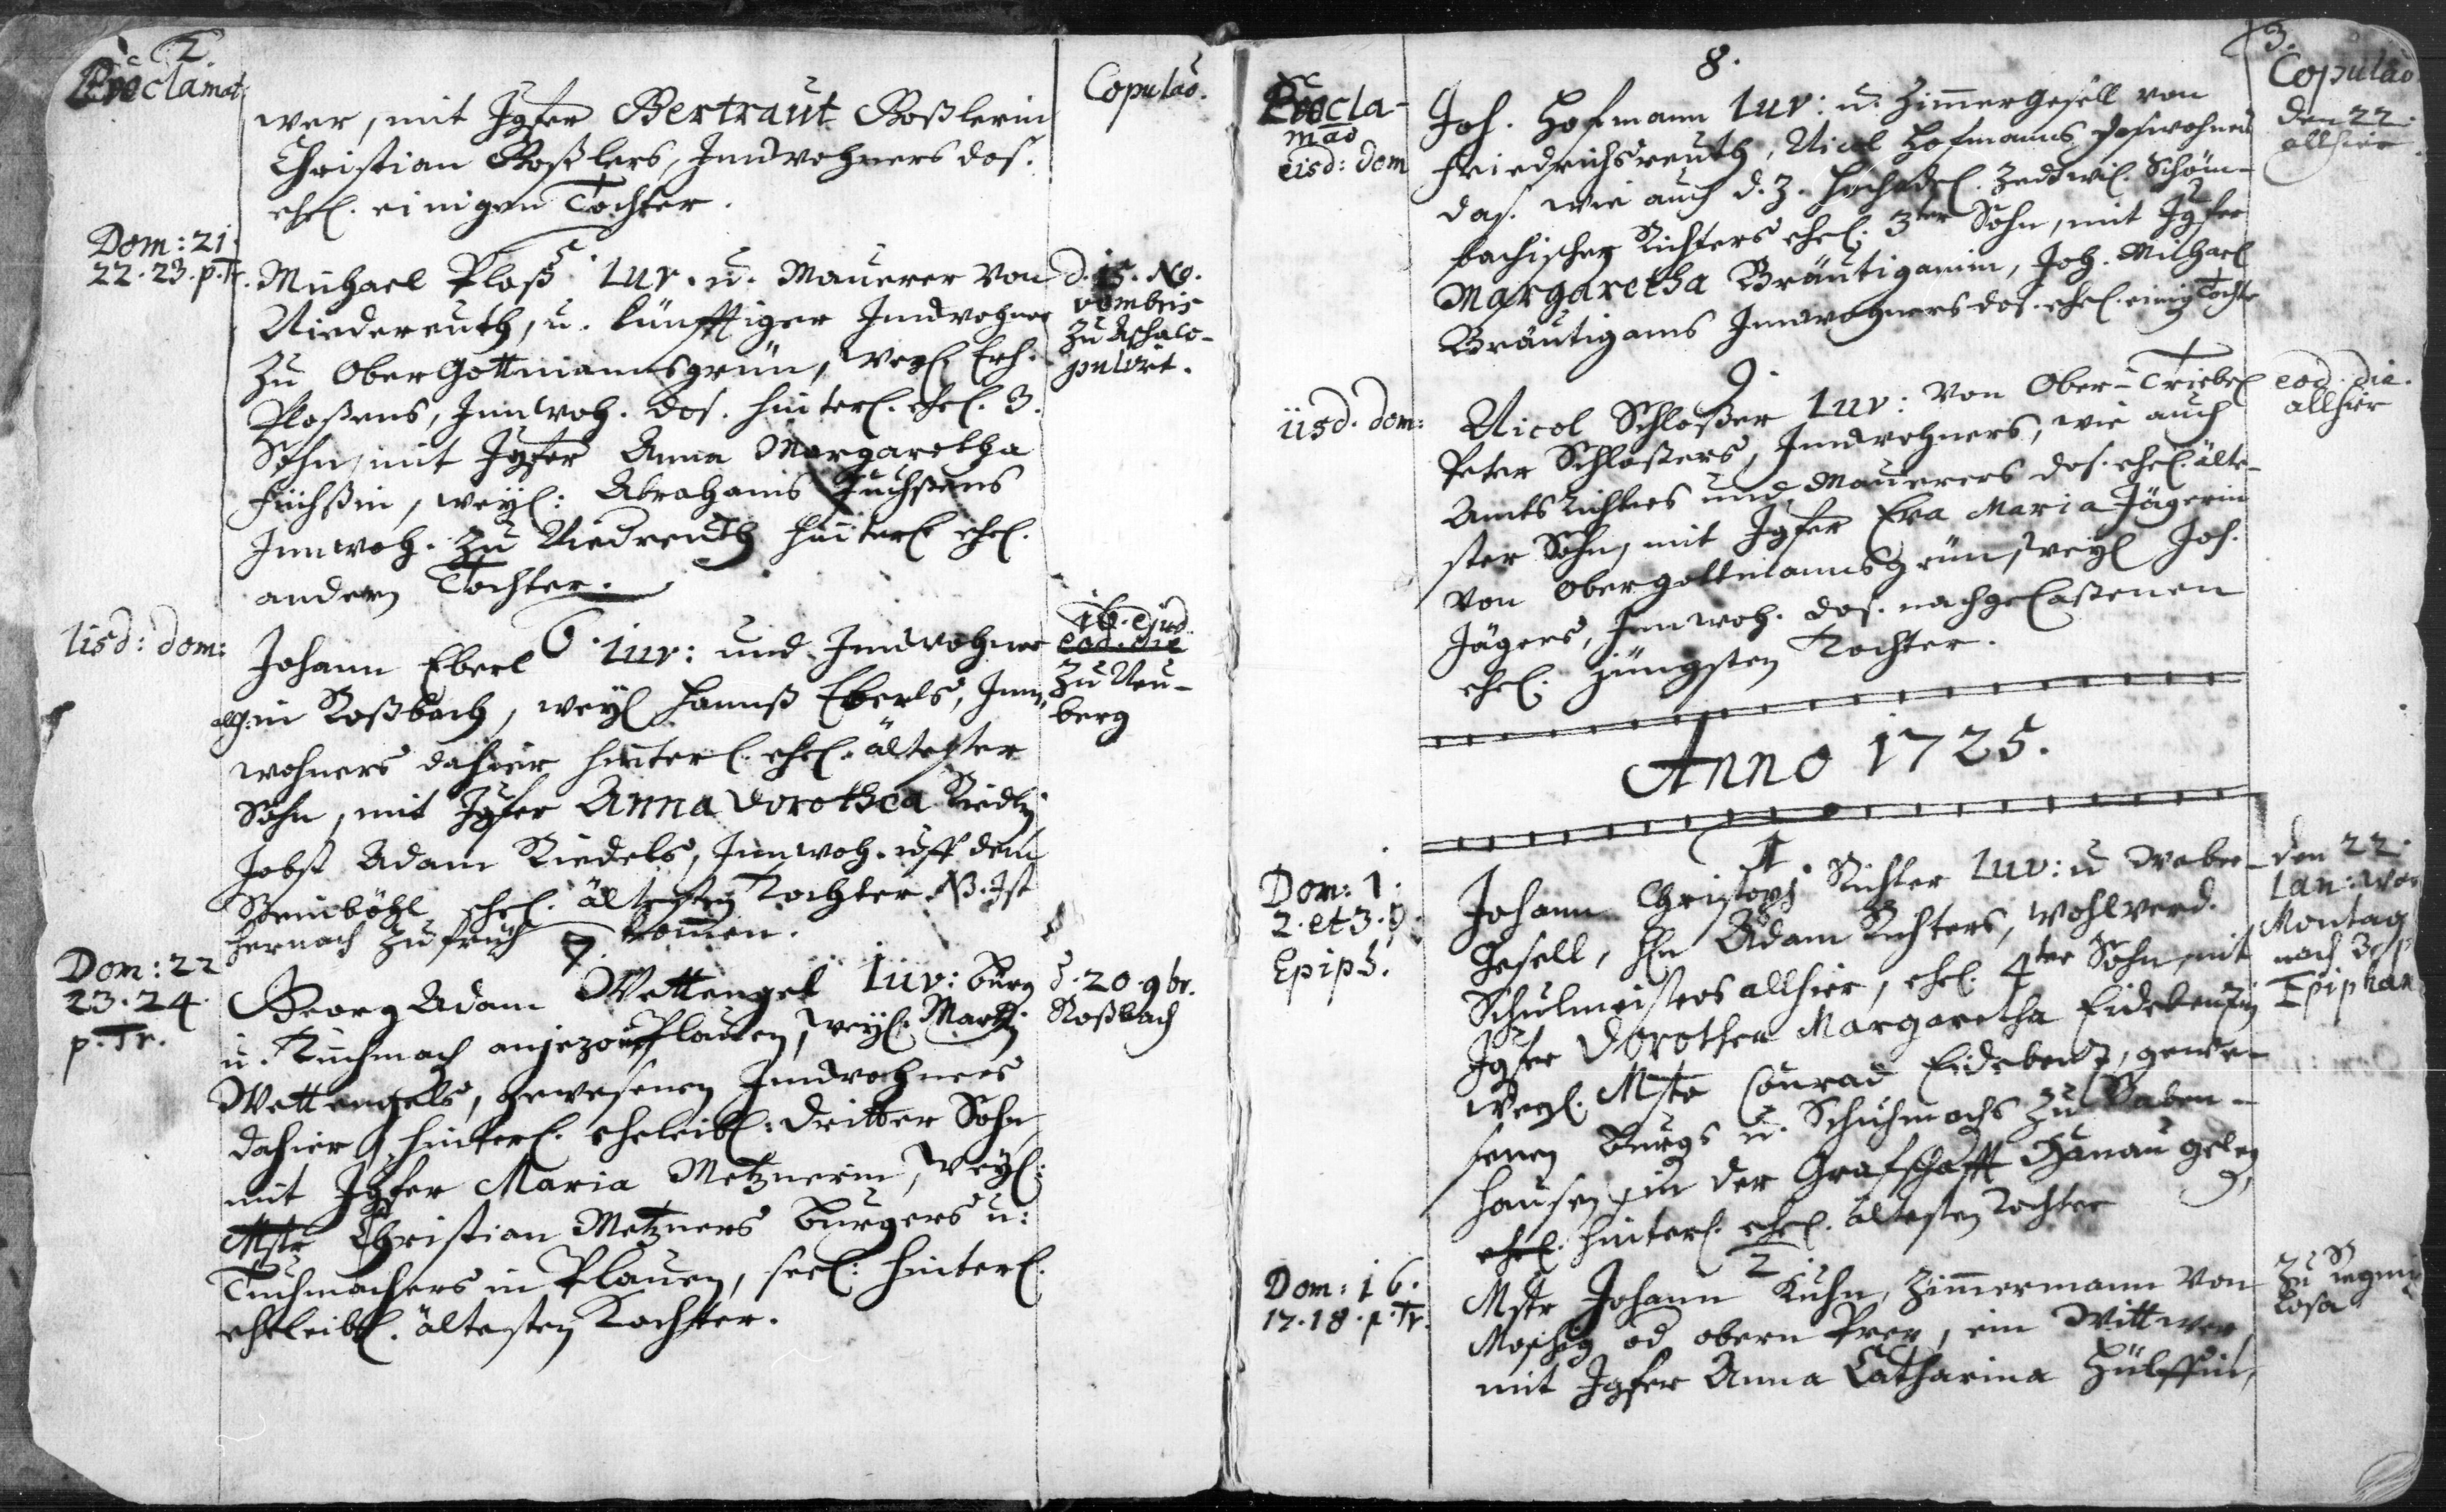 2.
Proclamat:
Copulao.
wer, mit Jgfer Bertraut Roßlerin
Christian Roßlers, Innwohners das.
ehel. einigen Tochter.
Dom: 21.
22. 23. p. Tr.
5.
Michael Ploß Iuv. u. Maurer von
Niedereuth, u. künfftiger Innwohner
zu Ober Gottmannsgrün, weyl. Erh.
Ploßens, Innwoh. das. hinterl. ehel. 3.
Sohn, mit Jgfer Anna Margaretha
Füchßin, weyl: Abrahams Fuchßens
Innwoh. zu Niedreuth hinterl. ehel.
andern Tochter.
d. 15. No-
vembris
zu Asch co-
pulirt.
Iisd: dom:
6.
Johann Eberl Iuv: und Innwohner
allh. in Roßbach, weyl Hannß Eberls, Inn-
wohners dahier hinterl. ehel. ältester
Sohn, mit Jgfer Anna Dorothea Riedlin
Jobst Adam Riedels, Innwoh. uff dem
Steinböhl ehel. ältesten Tochter. NB. Ist
hernach zu früh kommen.
16. ejusd.
eod. die
zu Neu-
berg
Dom: 22
23. 24.
p. Tr.
7.
Georg Adam Wettengel Iuv: Burg
u. Tuchmach anjezo in Plauen, weyl. Martin
Wettengels, gewesenen Innwohners
dahier hinterl. eheleibl: dritter Sohn
mit Jgfer Maria Metznerin, weyl:
Mstr Christian Metzners Burgers u:
Tuchmachers in Plauen, seel: hinterl.
eheleibl. ältesten Tochter.
d. 20. 9br.
Roßbach
3.
Procla-
mao
eisd: dom
Copulao
8.
Joh. Hofmann Iuv: u. Zimmergesell von
Friedrichsreuth, Nicol Hofmanns Innwohners
das. wie auch d. Z. Hochadel. Zedtwiz. Schöm-
bachischen Richters ehel. 3ter Sohn, mit Jgfer
Margaretha Bräutigamin, Joh. Michael
Bräutigams Innwohners das. ehel. einig Tochter
den 22.
allhier
iisd. dom:
9.
Nicol Schloßer Iuv: von Ober-Triebel
Peter Schloßers, Innwohners, wie auch
Amts Richters und Maurers das. ehel. älte-
ster Sohn, mit Jgfer Eva Maria Jägerin
von Obergottmannsgrün, weyl Joh.
Jägers, Innwoh. das. nachgelaßenen
ehel. jüngsten Tochter.
eod. die.
allhier
Anno 1725.
Dom: 1.
2. et 3. p.
Epiph.
1.
Johann Christoph Richter Iuv: u Weber-
Gesell, Hn Adam Richters, wohlverd.
Schulmeisters allhier, ehel. 4ter Sohn mit
Jgfer Dorothea Margaretha Eidebenzin
weyl. Mstr Conrad Eidebenz, gewe-
senen Burgs u. Schuhmachs zu Baben-
hausen, in der Grafschafft Hanau gelegen,
ehel. hinterl. ehel. ältesten Tochter
den 22.
Ian: war
Montag
nach 3 p
Epiphan
Dom: 16.
17. 18. p. Tr.
2.
Mstr Johann Kuhn, Zimmermann von
Moschig od obern Prex, ein Wittwer
mit Jgfer Anna Catharina Hülffin,
zu Regniz
losa